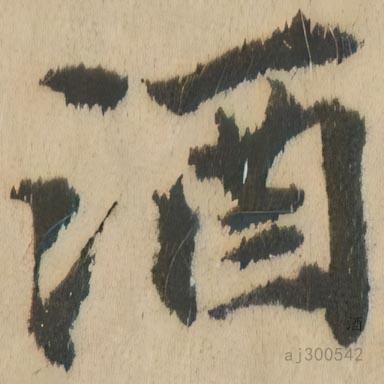 酒
酒
aj300542